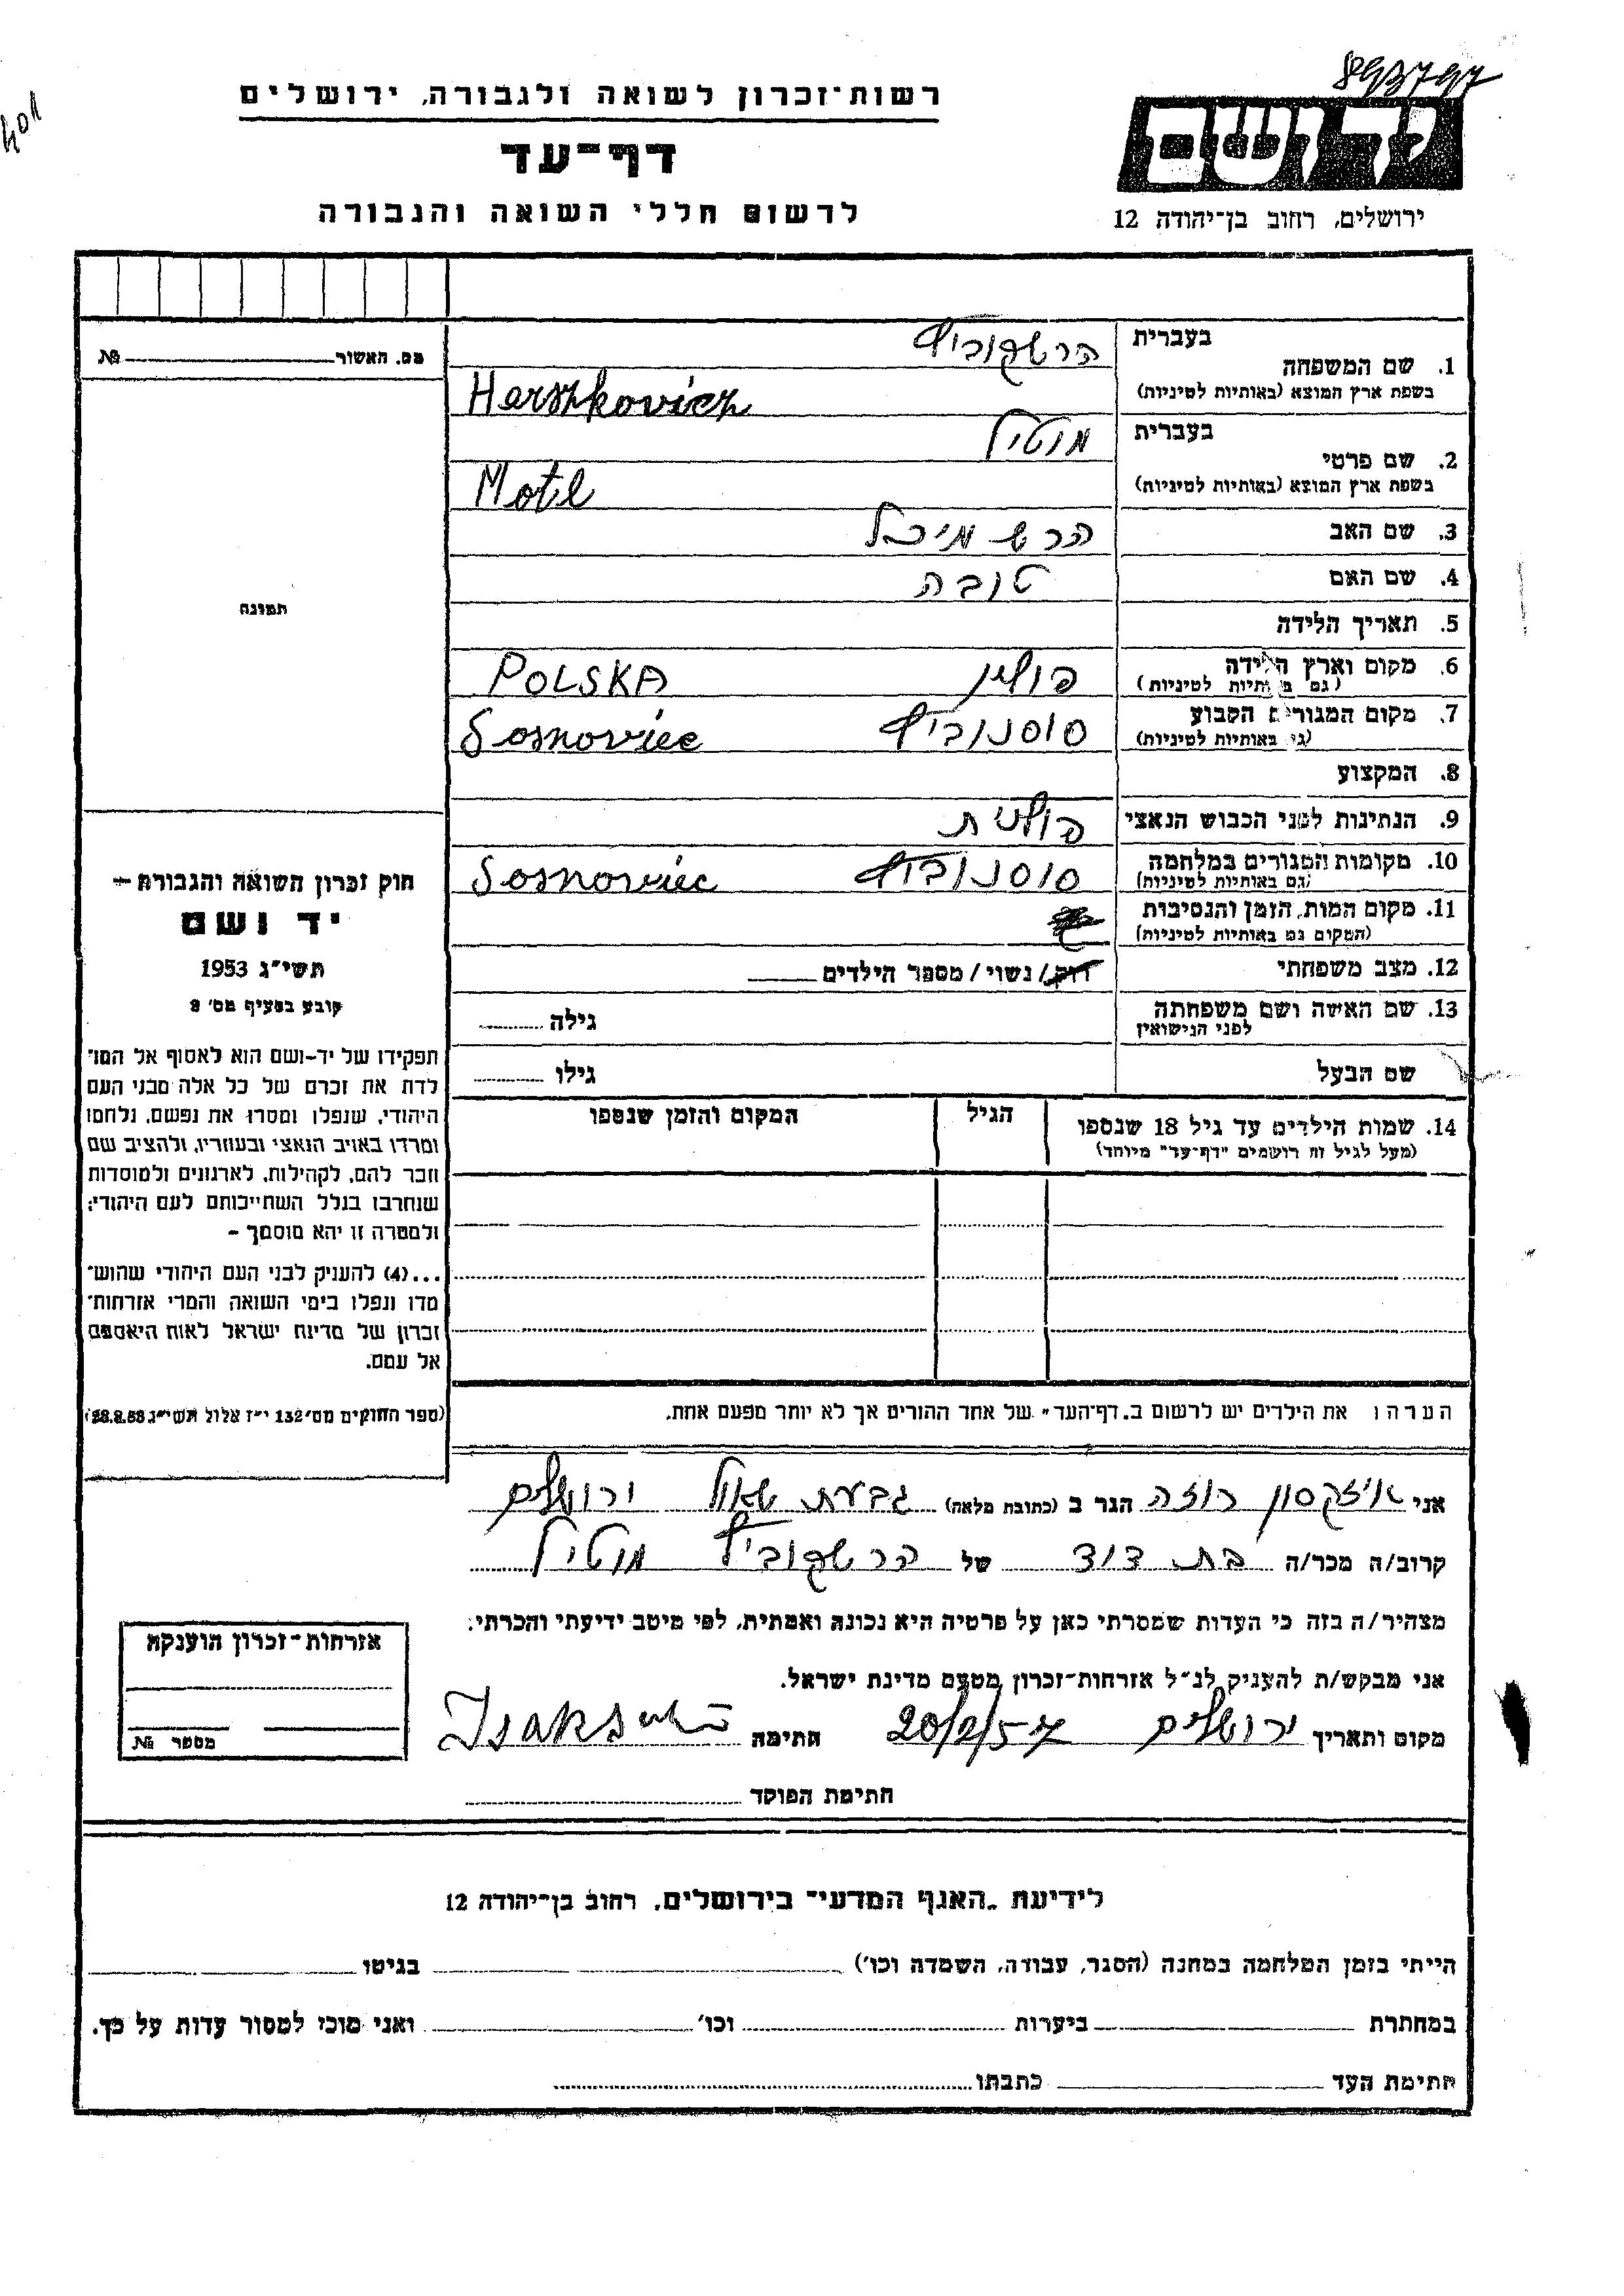 893797
רשות־זכרון לשואה ולגבורה, ירושלים
דף־עד
לרשום חללי השואה והגבורה
יד ושם
ירושלים, רחוב בן־יהודה 12
מס. האשור № 
תמונה
חוק זכרון השואה והגבורה –
יד ושם
תשי״ג 1953
קובע בסעיף מס׳ 2
תפקידו של יד-ושם הוא לאסוף אל המו־
לדת את זכרם של כל אלה מבני העם
היהודי, שנפלו ומסרו את נפשם, נלחמו
ומרדו באויב הנאצי ובעוזריו, ולהציב שם
וזכר להם, לקהילות, לארגונים ולמוסדות
שנחרבו בגלל השתייכותם לעם היהודי;
ולמטרה זו יהא מוסמך –
...(4) להעניק לבני העם היהודי שהוש־
מדו ונפלו בימי השואה והמרי אזרחות־
זכרון של מדינת ישראל לאות היאספם
אל עמם.
(ספר החוקים מס׳ 132 י״ז אלול תשי״ג 28.8.53)
בעברית הרשקוביץ
1. שם המשפחה
בשפת ארץ המוצא (באותיות לטיניות) Herszkovicz
בעברית מוטיל
2. שם פרטי
בשפת ארץ המוצא (באותיות לטיניות) Motl
3. שם האב הרש מיכל
4. שם האם טובה
5. תאריך הלידה
6. מקום וארץ הלידה פולין POLSKA
(גם באותיות לטיניות)
7. מקום המגורים הקבוע סוסנוביץ Sosnoviec
(גם באותיות לטיניות)
8. המקצוע
9. הנתינות לפני הכבוש הנאצי פולנית
10. מקומות המגורים במלחמה סוסנוביץ Sosnoviec
(גם באותיות לטיניות)
11. מקום המות, הזמן והנסיבות
(המקום גם באותיות לטיניות)
12. מצב משפחתי רוק/נשוי/מספר הילדים
13. שם האשה ושם משפחתה גילה
לפני הנישואין
שם הבעל גילו
14. שמות הילדים עד גיל 18 שנספו הגיל המקום והזמן שנספו
(מעל לגיל זה רושמים ״דף-עד״ מיוחד)
הערה: את הילדים יש לרשום ב״דף־העד״ של אחד ההורים אך לא יותר מפעם אחת.
אני איזקסון רוזה הגר ב (כתובת מלאה) גבעת שאול ירושלים
קרוב/ה מכר/ה בת דוד של הרשקוביץ מוטיל
מצהיר/ה בזה כי העדות שמסרתי כאן על פרטיה היא נכונה ואמתית, לפי מיטב ידיעתי והכרתי.
אני מבקש/ת להעניק לנ״ל אזרחות־זכרון מטעם מדינת ישראל.
מקום ותאריך ירושלים 20/2/57 חתימה
חתימת הפוקד
אזרחות־זכרון הוענקה
מספר №
לידיעת ״האגף המדעי״ בירושלים, רחוב בן־יהודה 12
הייתי בזמן המלחמה במחנה (הסגר, עבודה, השמדה וכו׳) בגיטו
במחתרת ביערות וכו׳ ואני מוכן למסור עדות על כך.
חתימת העד כתבתו